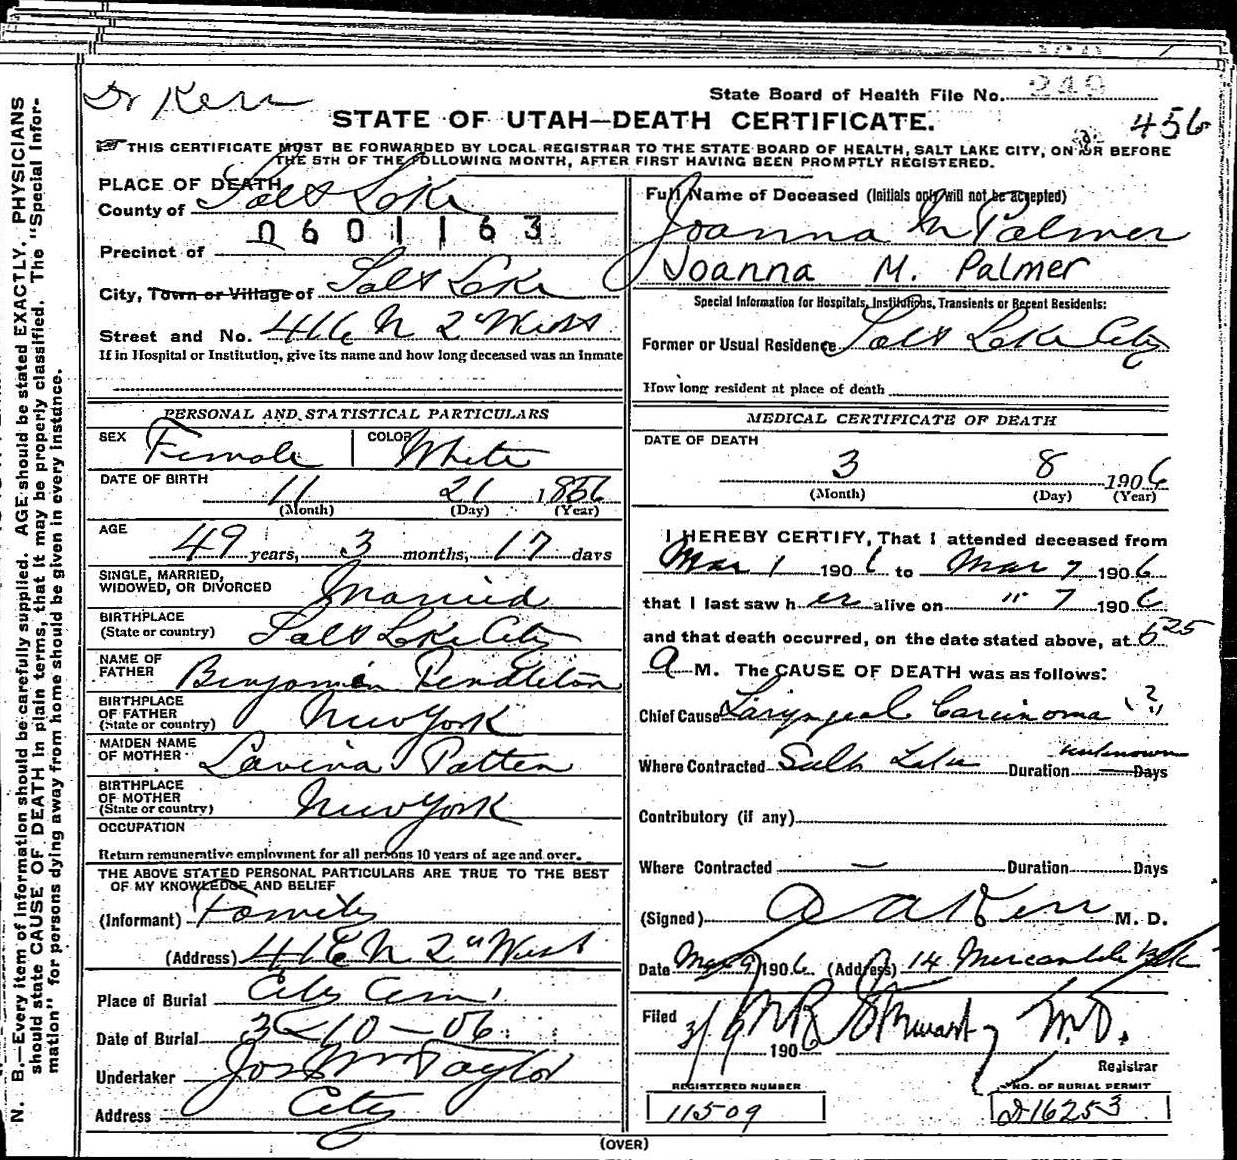 Dr Kerr
State Board of Health File No. 249
STATE OF UTAH—DEATH CERTIFICATE.
456
THIS CERTIFICATE MUST BE FORWARDED BY LOCAL REGISTRAR TO THE STATE BOARD OF HEALTH, SALT LAKE CITY, ON OR BEFORE
THE 5TH OF THE FOLLOWING MONTH, AFTER FIRST HAVING BEEN PROMPTLY REGISTERED.
N. B.—Every item of information should be carefully supplied. AGE should be stated EXACTLY. PHYSICIANS
should state CAUSE OF DEATH in plain terms, that it may be properly classified. The "Special Infor-
mation" for persons dying away from home should be given in every instance.
PLACE OF DEATH
County of Salt Lake
0601163
Precinct of
City, Town or Village of Salt Lake
Street and No. 416 N 2" West
If in Hospital or Institution, give its name and how long deceased was an inmate
PERSONAL AND STATISTICAL PARTICULARS
SEX Female COLOR White
DATE OF BIRTH 11 21 1856
(Month) (Day) (Year)
AGE 49 years, 3 months, 17 days
SINGLE, MARRIED,
WIDOWED, OR DIVORCED Married
BIRTHPLACE
(State or country) Salt Lake City
NAME OF
FATHER Benjamin Pendleton
BIRTHPLACE
OF FATHER
(State or country) New York
MAIDEN NAME
OF MOTHER Lavina Patten
BIRTHPLACE
OF MOTHER
(State or country) New York
OCCUPATION
Return remunerative employment for all persons 10 years of age and over.
THE ABOVE STATED PERSONAL PARTICULARS ARE TRUE TO THE BEST
OF MY KNOWLEDGE AND BELIEF
(Informant) Family
(Address) 416 N 2" West
Place of Burial City Cem.
Date of Burial 3-10-06
Undertaker Jos Wm Taylor
Address City
Full Name of Deceased (Initials only will not be accepted)
Joanna M Palmer
Joanna M. Palmer
Special Information for Hospitals, Institutions, Transients or Recent Residents:
Former or Usual Residence Salt Lake City
How long resident at place of death
MEDICAL CERTIFICATE OF DEATH
DATE OF DEATH
3 8 1906
(Month) (Day) (Year)
I HEREBY CERTIFY, That I attended deceased from
Mar 1 1906 to Mar 7 1906
that I last saw her alive on " 7 1906
and that death occurred, on the date stated above, at 6 25
A M. The CAUSE OF DEATH was as follows:
Chief Cause Laryngeal Carcinoma (?)
Where Contracted Salt Lake Duration unknown Days
Contributory (if any)
Where Contracted — Duration Days
(Signed) A A Kerr M. D.
Date Mar 9 1906 (Address) 14 Mercantile Blk
Filed 3/9 1906 M R Stewart, M.D.
Registrar
REGISTERED NUMBER
11509
NO. OF BURIAL PERMIT
D16253
(OVER)